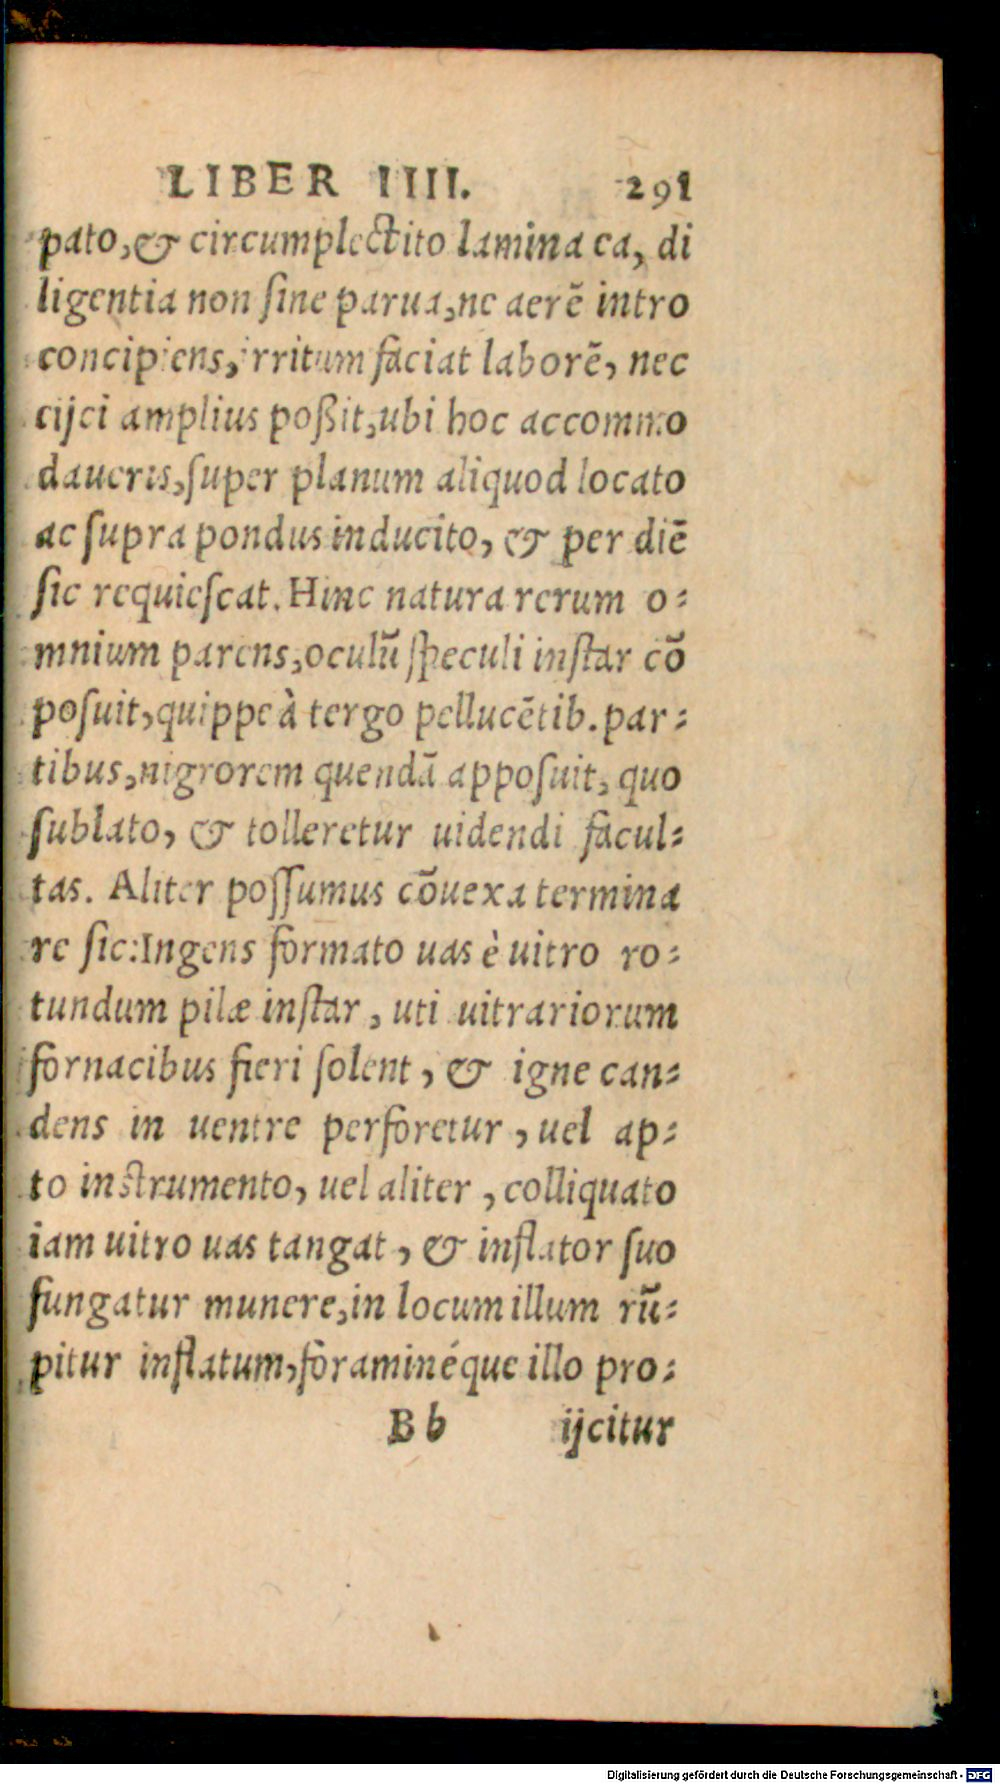 LIBER IIII. 291
pato, & circumplectito lamina ea, di
ligentia non ſine parua, ne aerē intro
concipiens, irritum faciat laborē, nec
eijci amplius poßit, ubi hoc accommo
daueris, ſuper planum aliquod locato
ac ſupra pondus inducito, & per diē
ſic requieſcat. Hinc natura rerum o-
mnium parens, oculū ſpeculi inſtar cō
poſuit, quippe à tergo pellucētib. par-
tibus, nigrorem quendā appoſuit, quo
ſublato, & tolleretur uidendi facul-
tas. Aliter poſſumus cōuexa termina
re ſic: Ingens formato uas è uitro ro-
tundum pilæ inſtar, uti uitrariorum
fornacibus fieri ſolent, & igne can-
dens in uentre perforetur, uel ap-
to inſtrumento, uel aliter, colliquato
iam uitro uas tangat, & inflator ſuo
fungatur munere, in locum illum rū-
pitur inflatum, foraminéque illo pro-
Bb ijcitur
Digitalisierung gefördert durch die Deutsche Forschungsgemeinschaft - DFG